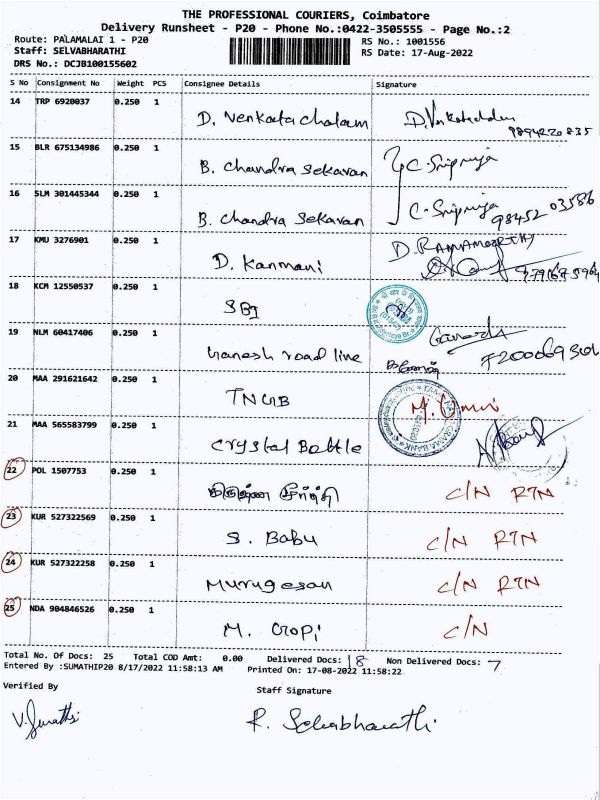 THE PROFESSIONAL COURIERS, Coimbatore
Delivery Runsheet - P20 - Phone No.:0422-3505555 - Page No.:2
Route: PALAMALAI 1 - P20 RS No.: 1001556
Staff: SELVABHARATHI RS Date: 17-Aug-2022
DRS No.: DCJB100155602
S No Consignment No Weight PCS Consignee Details Signature
14 TRP 6920037 0.250 1 D. Venkata Chalam
9894220835
15 BLR 675134986 0.250 1 B. Chandra Sekaran C. Sripriya
16 SLM 301445344 0.250 1 B. Chandra Sekaran C. Sripriya 98452 03586
17 KMU 3276901 0.250 1 D. Kanmani D. RAMAMOORTHY
18 KCM 12550537 0.250 1 SBI
19 NLM 60417406 0.250 1 Ganesh road line
20 MAA 291621642 0.250 1 TNGB
21 MAA 565583799 0.250 1 Crystal Bottle
22 POL 1507753 0.250 1 C/N RTN
23 KUR 527322569 0.250 1 S. Babu C/N RTN
24 KUR 527322258 0.250 1 Murugesan C/N RTN
25 NDA 904846526 0.250 1 M. Gopi C/N
Total No. Of Docs: 25 Total COD Amt: 0.00 Delivered Docs: 18 Non Delivered Docs: 7
Entered By :SUMATHIP20 8/17/2022 11:58:13 AM Printed On: 17-08-2022 11:58:22
Verified By Staff Signature
V. Sumathi R. Selvabharathi